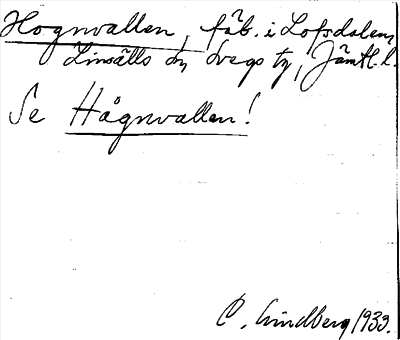 Hognvallen, fäb. i Lofsdalen,
Linsälls sn Svegs tg, Jämtl. l.
Se Hågnvallen!
C. Lindberg 1933.